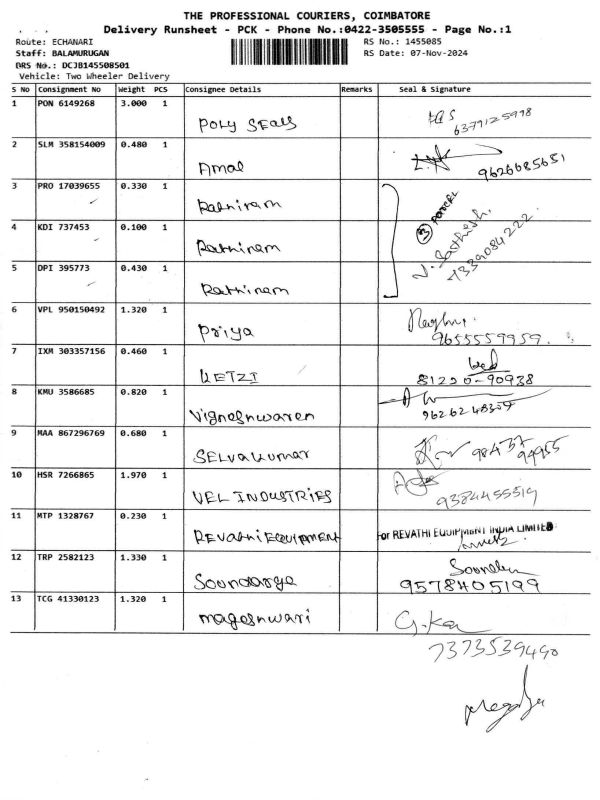 THE PROFESSIONAL COURIERS, COIMBATORE
Delivery Runsheet - PCK - Phone No.:0422-3505555 - Page No.:1
Route: ECHANARI RS No.: 1455085
Staff: BALAMURUGAN RS Date: 07-Nov-2024
DRS No.: DCJB145508501
Vehicle: Two Wheeler Delivery
S No Consignment No Weight PCS Consignee Details Remarks Seal & Signature
1 PON 6149268 3.000 1 POLY SEALS
6379125998
2 SLM 358154009 0.480 1 Amal 9626685651
3 PRO 17039655 0.330 1 Rathinam
4 KDI 737453 0.100 1 Rathinam
5 DPI 395773 0.430 1 Rathinam
J. Sathish.
7339084222
6 VPL 950150492 1.320 1 Priya
9655559959.
7 IXM 303357156 0.460 1 KETZI
81220-90938
8 KMU 3586685 0.820 1 Vigneshwaren
9 MAA 867296769 0.680 1 SELVAKUMAR
10 HSR 7266865 1.970 1 VEL INDUSTRIES
9384455519
11 MTP 1328767 0.230 1 REVATHI EQUIPMENT For REVATHI EQUIPMENT INDIA LIMITED
12 TRP 2582123 1.330 1 Soundarya
9578405199
13 TCG 41330123 1.320 1 mageshwari
7373539490